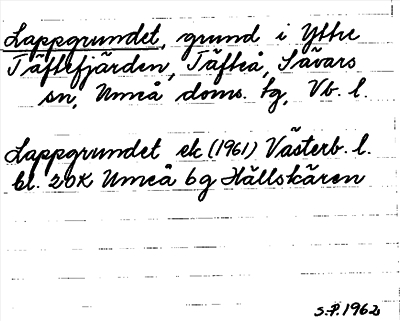 Lappgrundet, grund i Yttre
Täftefjärden, Täfteå, Sävars
sn, Umeå doms. tg, Vb. l.
Lappgrundet ek (1961) Västerb. l.
bl. 20K Umeå 6g Hällskären
S.P. 1962